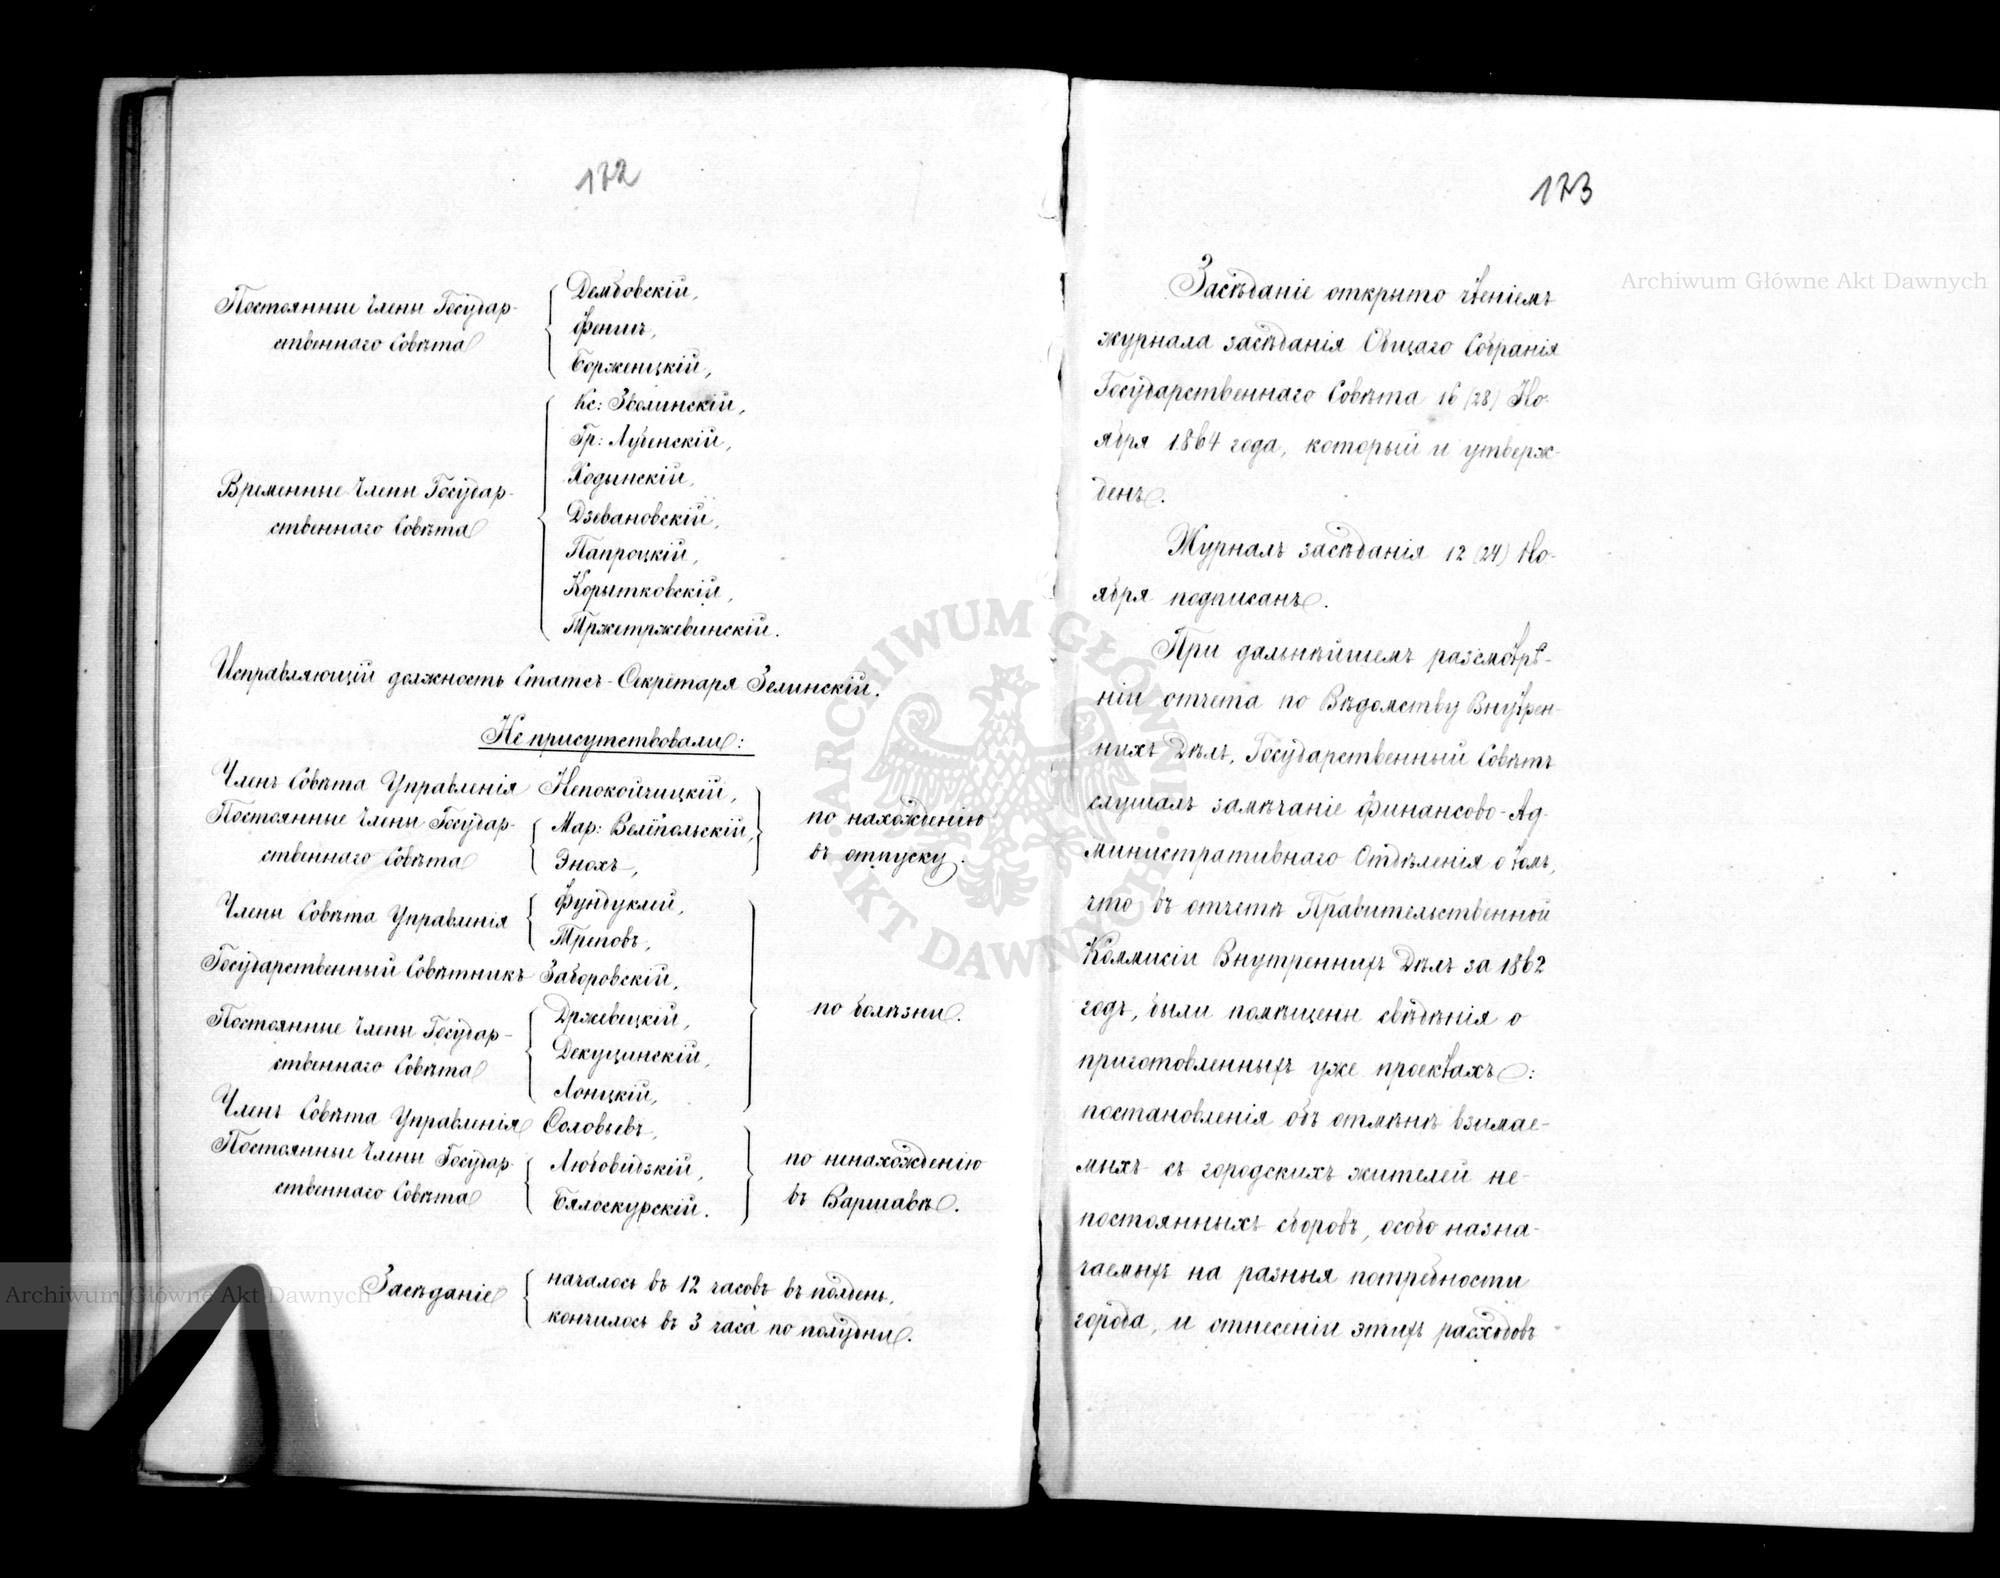 172
Постоянные Члены Государ-
ственнаго Совѣта
Дембовскій,
Феншъ,
Борженцкій,
Временные Члены Государ-
ственнаго Совѣта
Кс: Зволинскій,
Гр: Лубенскій,
Ходынскій,
Дзевановскій,
Папроцкій,
Корытковскій,
Тржетржевинскій.
Исправляющій должность Статсъ-Секретаря Зелинскій.
Не присутствовали:
Членъ Совѣта Управленія Непокойчицкій,
Постоянные Члены Государ-
ственнаго Совѣта
Мар: Велёпольскій,
Энохъ,
по нахожденію
въ отпуску.
Члены Совѣта Управленія
Фундуклей,
Треповъ,
Государственный Совѣтникъ Заборовскій,
Постоянные Члены Государ-
ственнаго Совѣта
Држевецкій,
Декуцинскій,
Лонцкій,
по болѣзни.
Членъ Совѣта Управленія Соловьевъ,
Постоянные Члены Государ-
ственнаго Совѣта
Любовидзкій,
Бялоскурскій.
по ненахожденію
въ Варшавѣ.
Засѣданіе
началось въ 12 часовъ въ полдень,
кончилось въ 3 часа по полудни.
173
Засѣданіе открыто чтеніемъ
журнала засѣданія Общаго Собранія
Государственнаго Совѣта 16 (28) Но-
ября 1864 года, который и утверж-
денъ.
Журналъ засѣданія 12 (24) Но-
ября подписанъ.
При дальнѣйшемъ разсмотрѣ-
ніи отчета по Вѣдомству Внутрен-
нихъ Дѣлъ, Государственный Совѣтъ
слушалъ замѣчаніе Финансово-Ад-
министративнаго Отдѣленія о томъ,
что въ отчетѣ Правительственной
Коммисіи Внутреннихъ Дѣлъ за 1862
годъ, были помѣщены свѣдѣнія о
приготовленныхъ уже проектахъ:
постановленія объ отмѣнѣ взимае-
мыхъ съ городскихъ жителей не-
постоянныхъ сборовъ, особо назна-
чаемыхъ на разныя потребности
города, и отнесеніи этихъ расходовъ
Archiwum Główne Akt Dawnych
Archiwum Główne Akt Dawnych
ARCHIWUM GŁÓWNE · AKT DAWNYCH ·